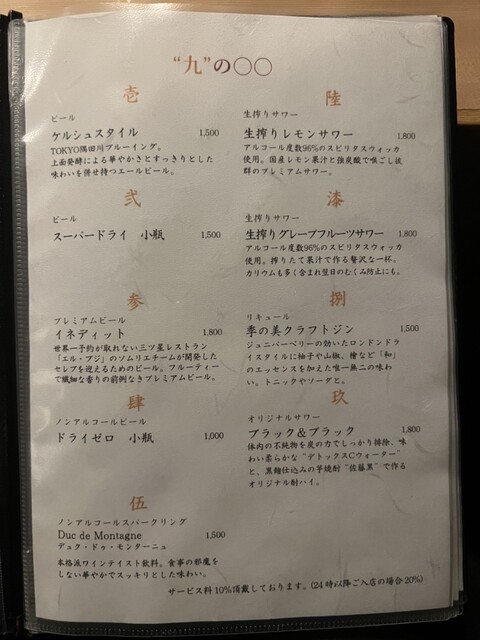 “九”の〇〇
壱
ビール
ケルシュスタイル 1,500
TOKYO隅田川ブルーイング。
上面発酵による華やかさとすっきりとした
味わいを併せ持つエールビール。
弐
ビール
スーパードライ 小瓶 1,500
参
プレミアムビール
イネディット 1,800
世界一予約が取れない三ツ星レストラン
「エル・ブジ」のソムリエチームが開発した
セレブを迎えるためのビール。フルーティー
で繊細な香りの前例なきプレミアムビール。
肆
ノンアルコールビール
ドライゼロ 小瓶 1,000
伍
ノンアルコールスパークリング
Duc de Montagne 1,500
デュク・ドゥ・モンターニュ
本格派ワインテイスト飲料。食事の邪魔を
しない華やかでスッキリとした味わい。
陸
生搾りサワー
生搾りレモンサワー 1,800
アルコール度数96%のスピリタスウォッカ
使用。国産レモン果汁と強炭酸で喉ごし抜
群のプレミアムサワー。
漆
生搾りサワー
生搾りグレープフルーツサワー 1,800
アルコール度数96%のスピリタスウォッカ
使用。搾りたて果汁で作る贅沢な一杯。
カリウムも多く含まれ翌日のむくみ防止にも。
捌
リキュール
季の美クラフトジン 1,500
ジュニパーベリーの効いたロンドンドラ
イスタイルに柚子や山椒、檜など「和」
のエッセンスを加えた唯一無二の味わ
い。トニックやソーダと。
玖
オリジナルサワー
ブラック&ブラック 1,800
体内の不純物を炭の力でしっかり排除、味
わい柔らかな“デトックスCウォーター”
と、黒麹仕込みの芋焼酎“佐藤黒”で作る
オリジナル酎ハイ。
サービス料10%頂戴しております。(24時以降ご入店の場合20%)